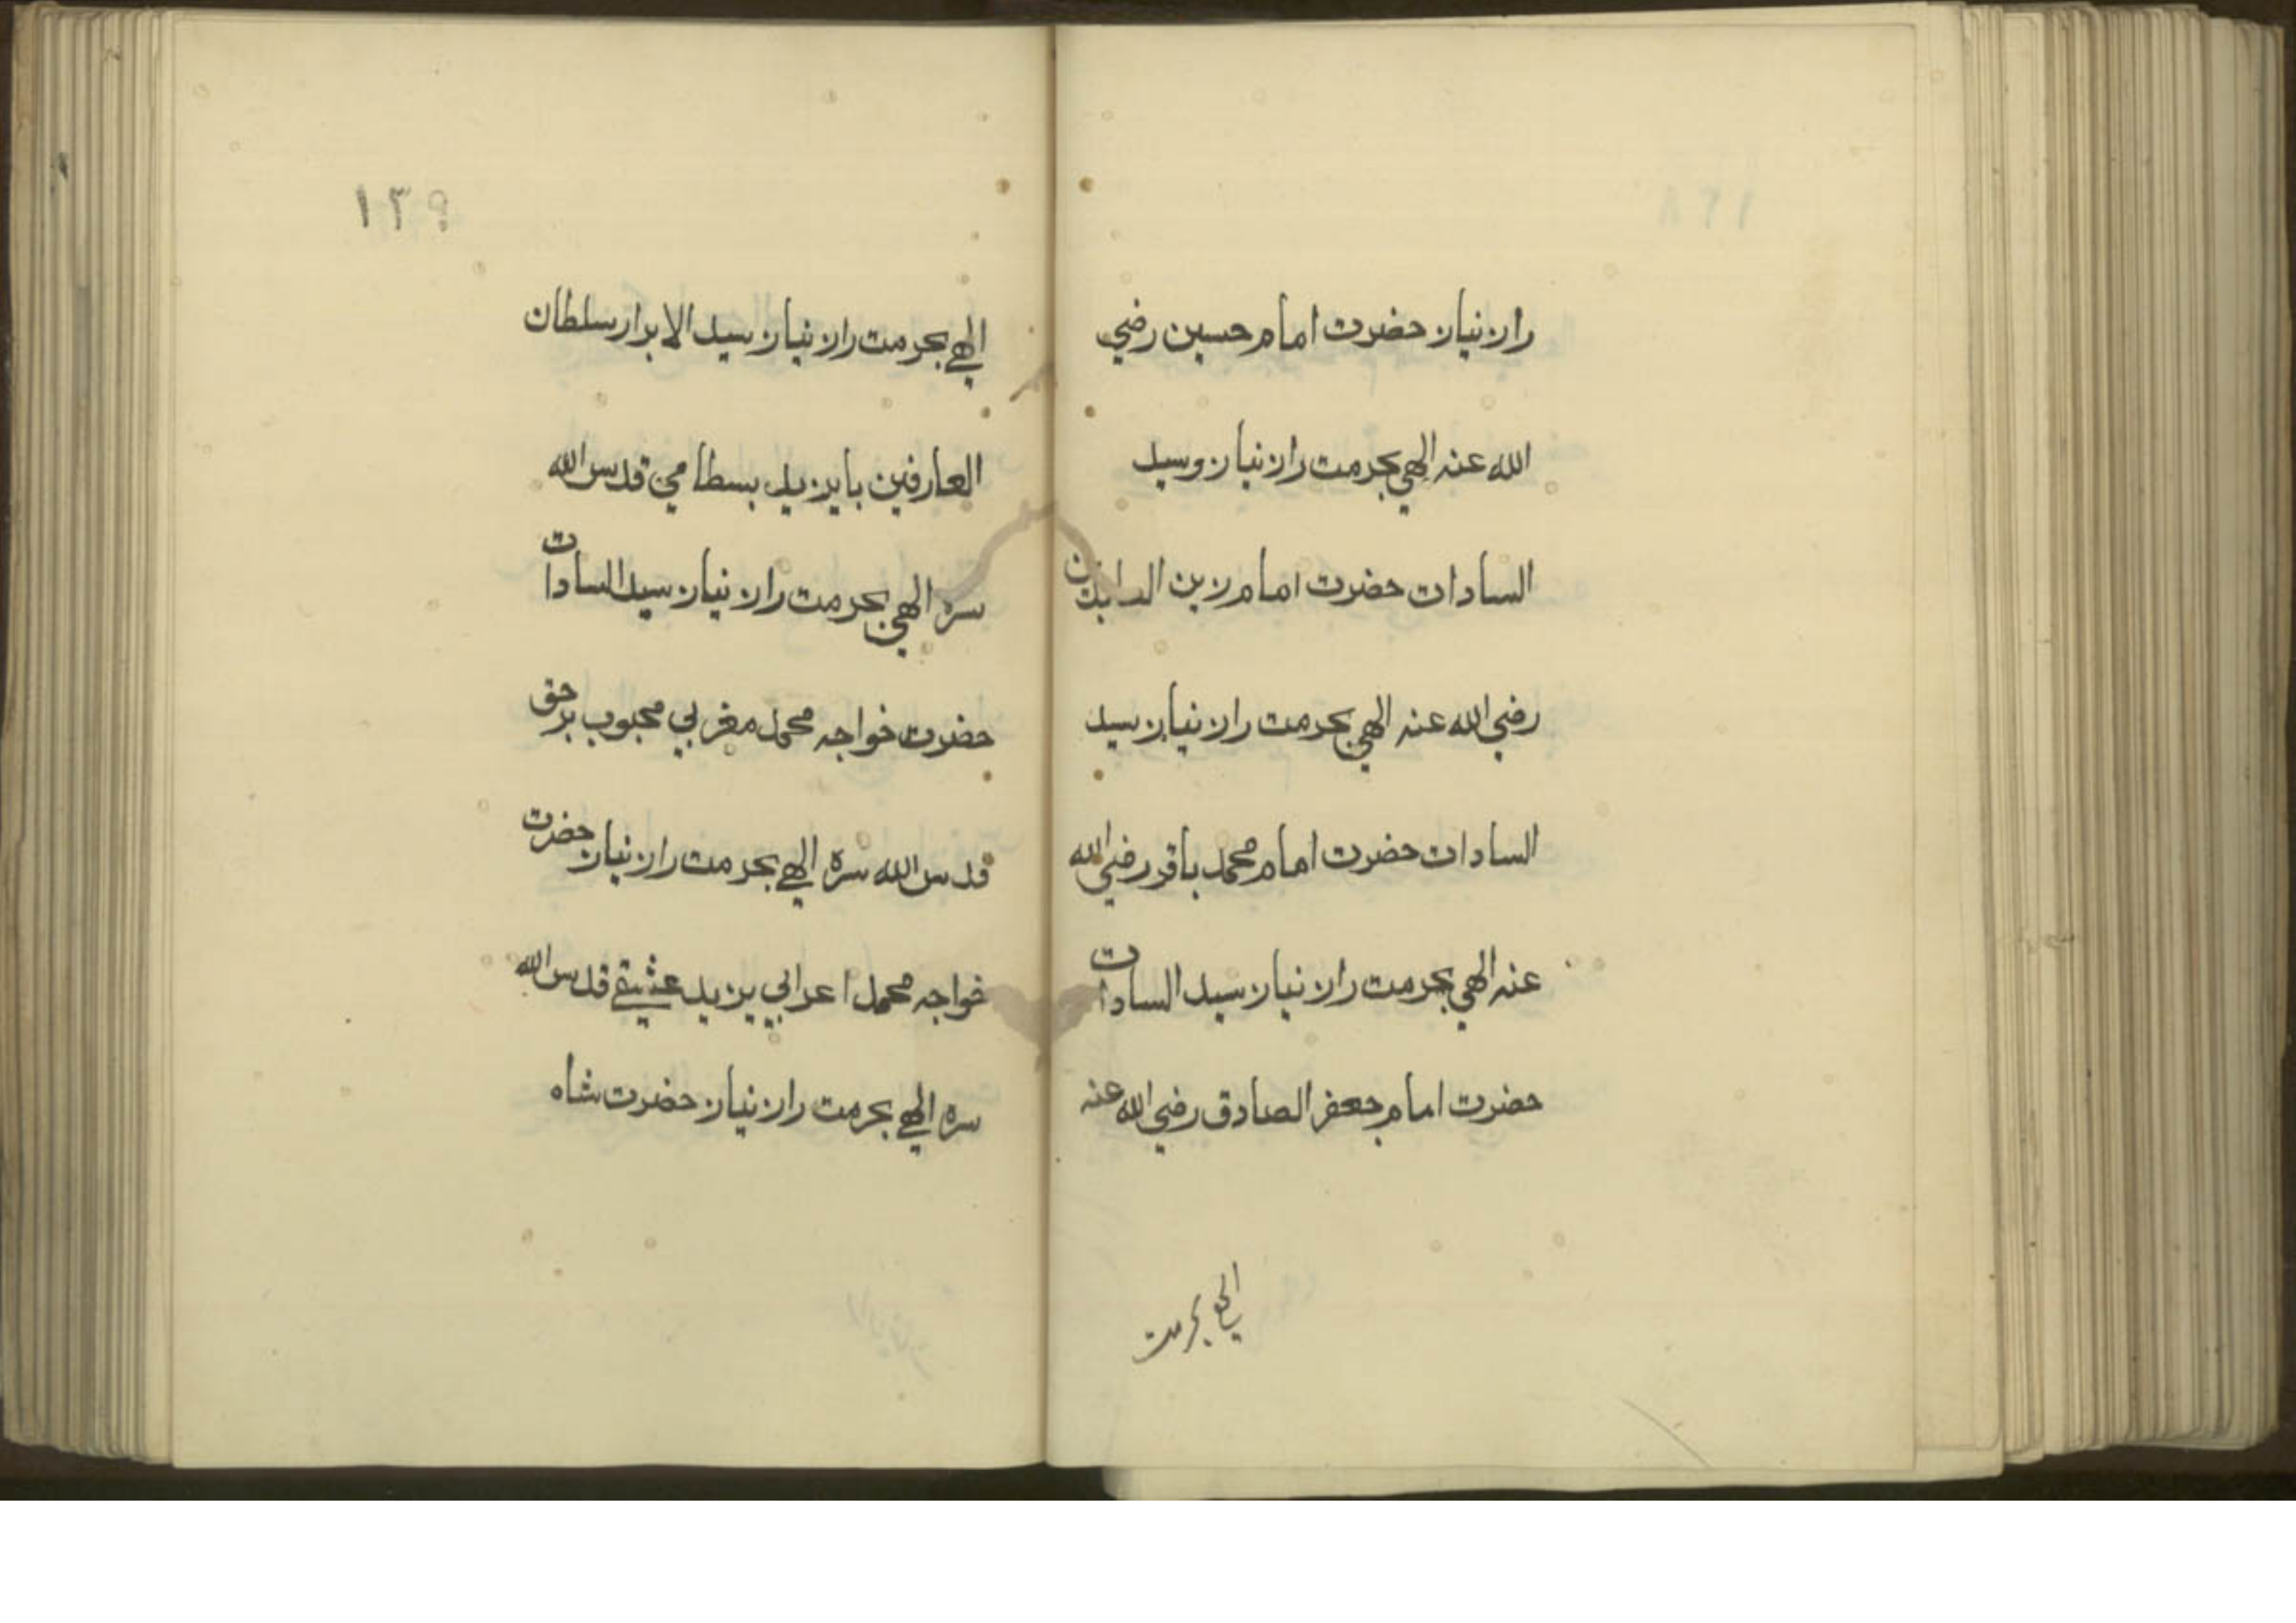 راز نیاز حضرت امام حسین رضي
الله عنه الهي بحرمت راز نیاز و سید
السادات حضرت امام زین العابدین
رضي الله عنه الهي بحرمت راز نیاز سید
السادات حضرت امام محمد باقر رضي الله
عنه الهي بحرمت راز نیاز سید السادات
حضرت امام جعفر الصادق رضي الله عنه
الهي بحرمت
۱۳۹
الهي بحرمت راز نیاز سید الابرار سلطان
العارفین بایزید بسطامي قدس الله
سره الهي بحرمت راز نیاز سید السادات
حضرت خواجه محمد مغربي محبوب برحق
قدس الله سره الهي بحرمت راز نیاز حضرت
خواجه محمد اعرابي یزید عشیقے قدس الله
سره الهي بحرمت راز نیاز حضرت شاه